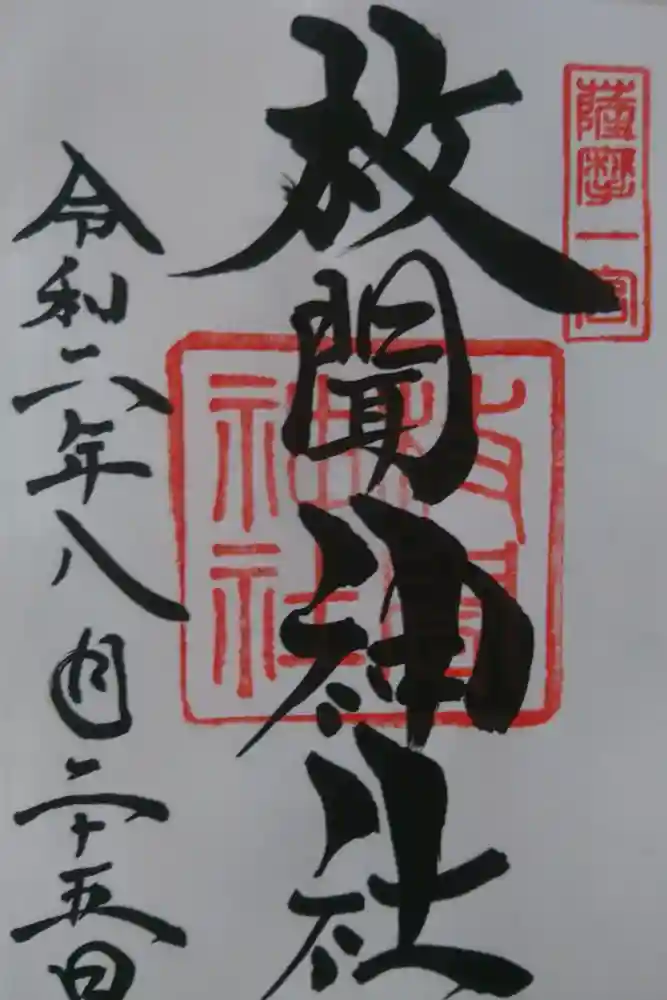 薩摩一宮
枚聞神社
枚聞神社
令和二年八月二十五日